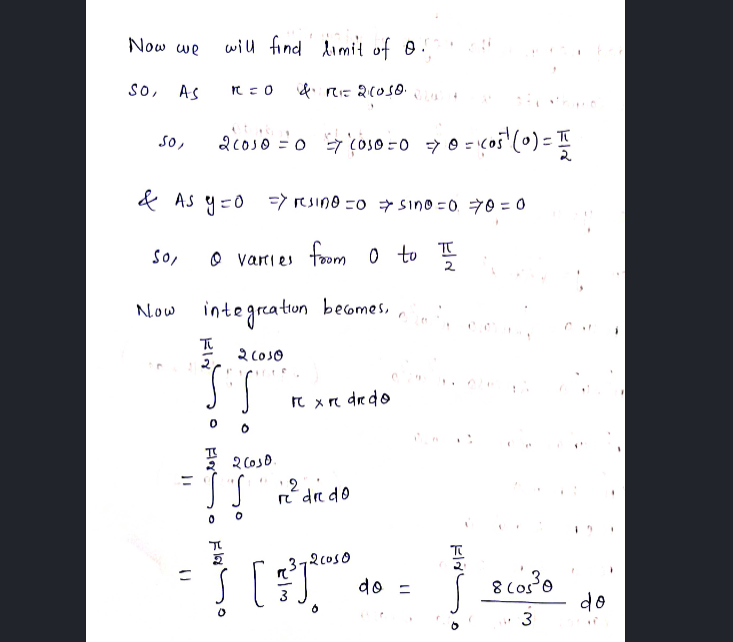 Now we will find limit of θ.
So, As r = 0 & r = 2cosθ.
so, 2cosθ = 0 ⇒ cosθ = 0 ⇒ θ = cos⁻¹(0) = π/2
& As y = 0 ⇒ r sinθ = 0 ⇒ sinθ = 0 ⇒ θ = 0
so, θ varies from 0 to π/2
Now integration becomes,
∫₀^(π/2) ∫₀^(2cosθ) r × r dr dθ
= ∫₀^(π/2) ∫₀^(2cosθ) r² dr dθ
= ∫₀^(π/2) [r³/3]₀^(2cosθ) dθ = ∫₀^(π/2) 8cos³θ/3 dθ